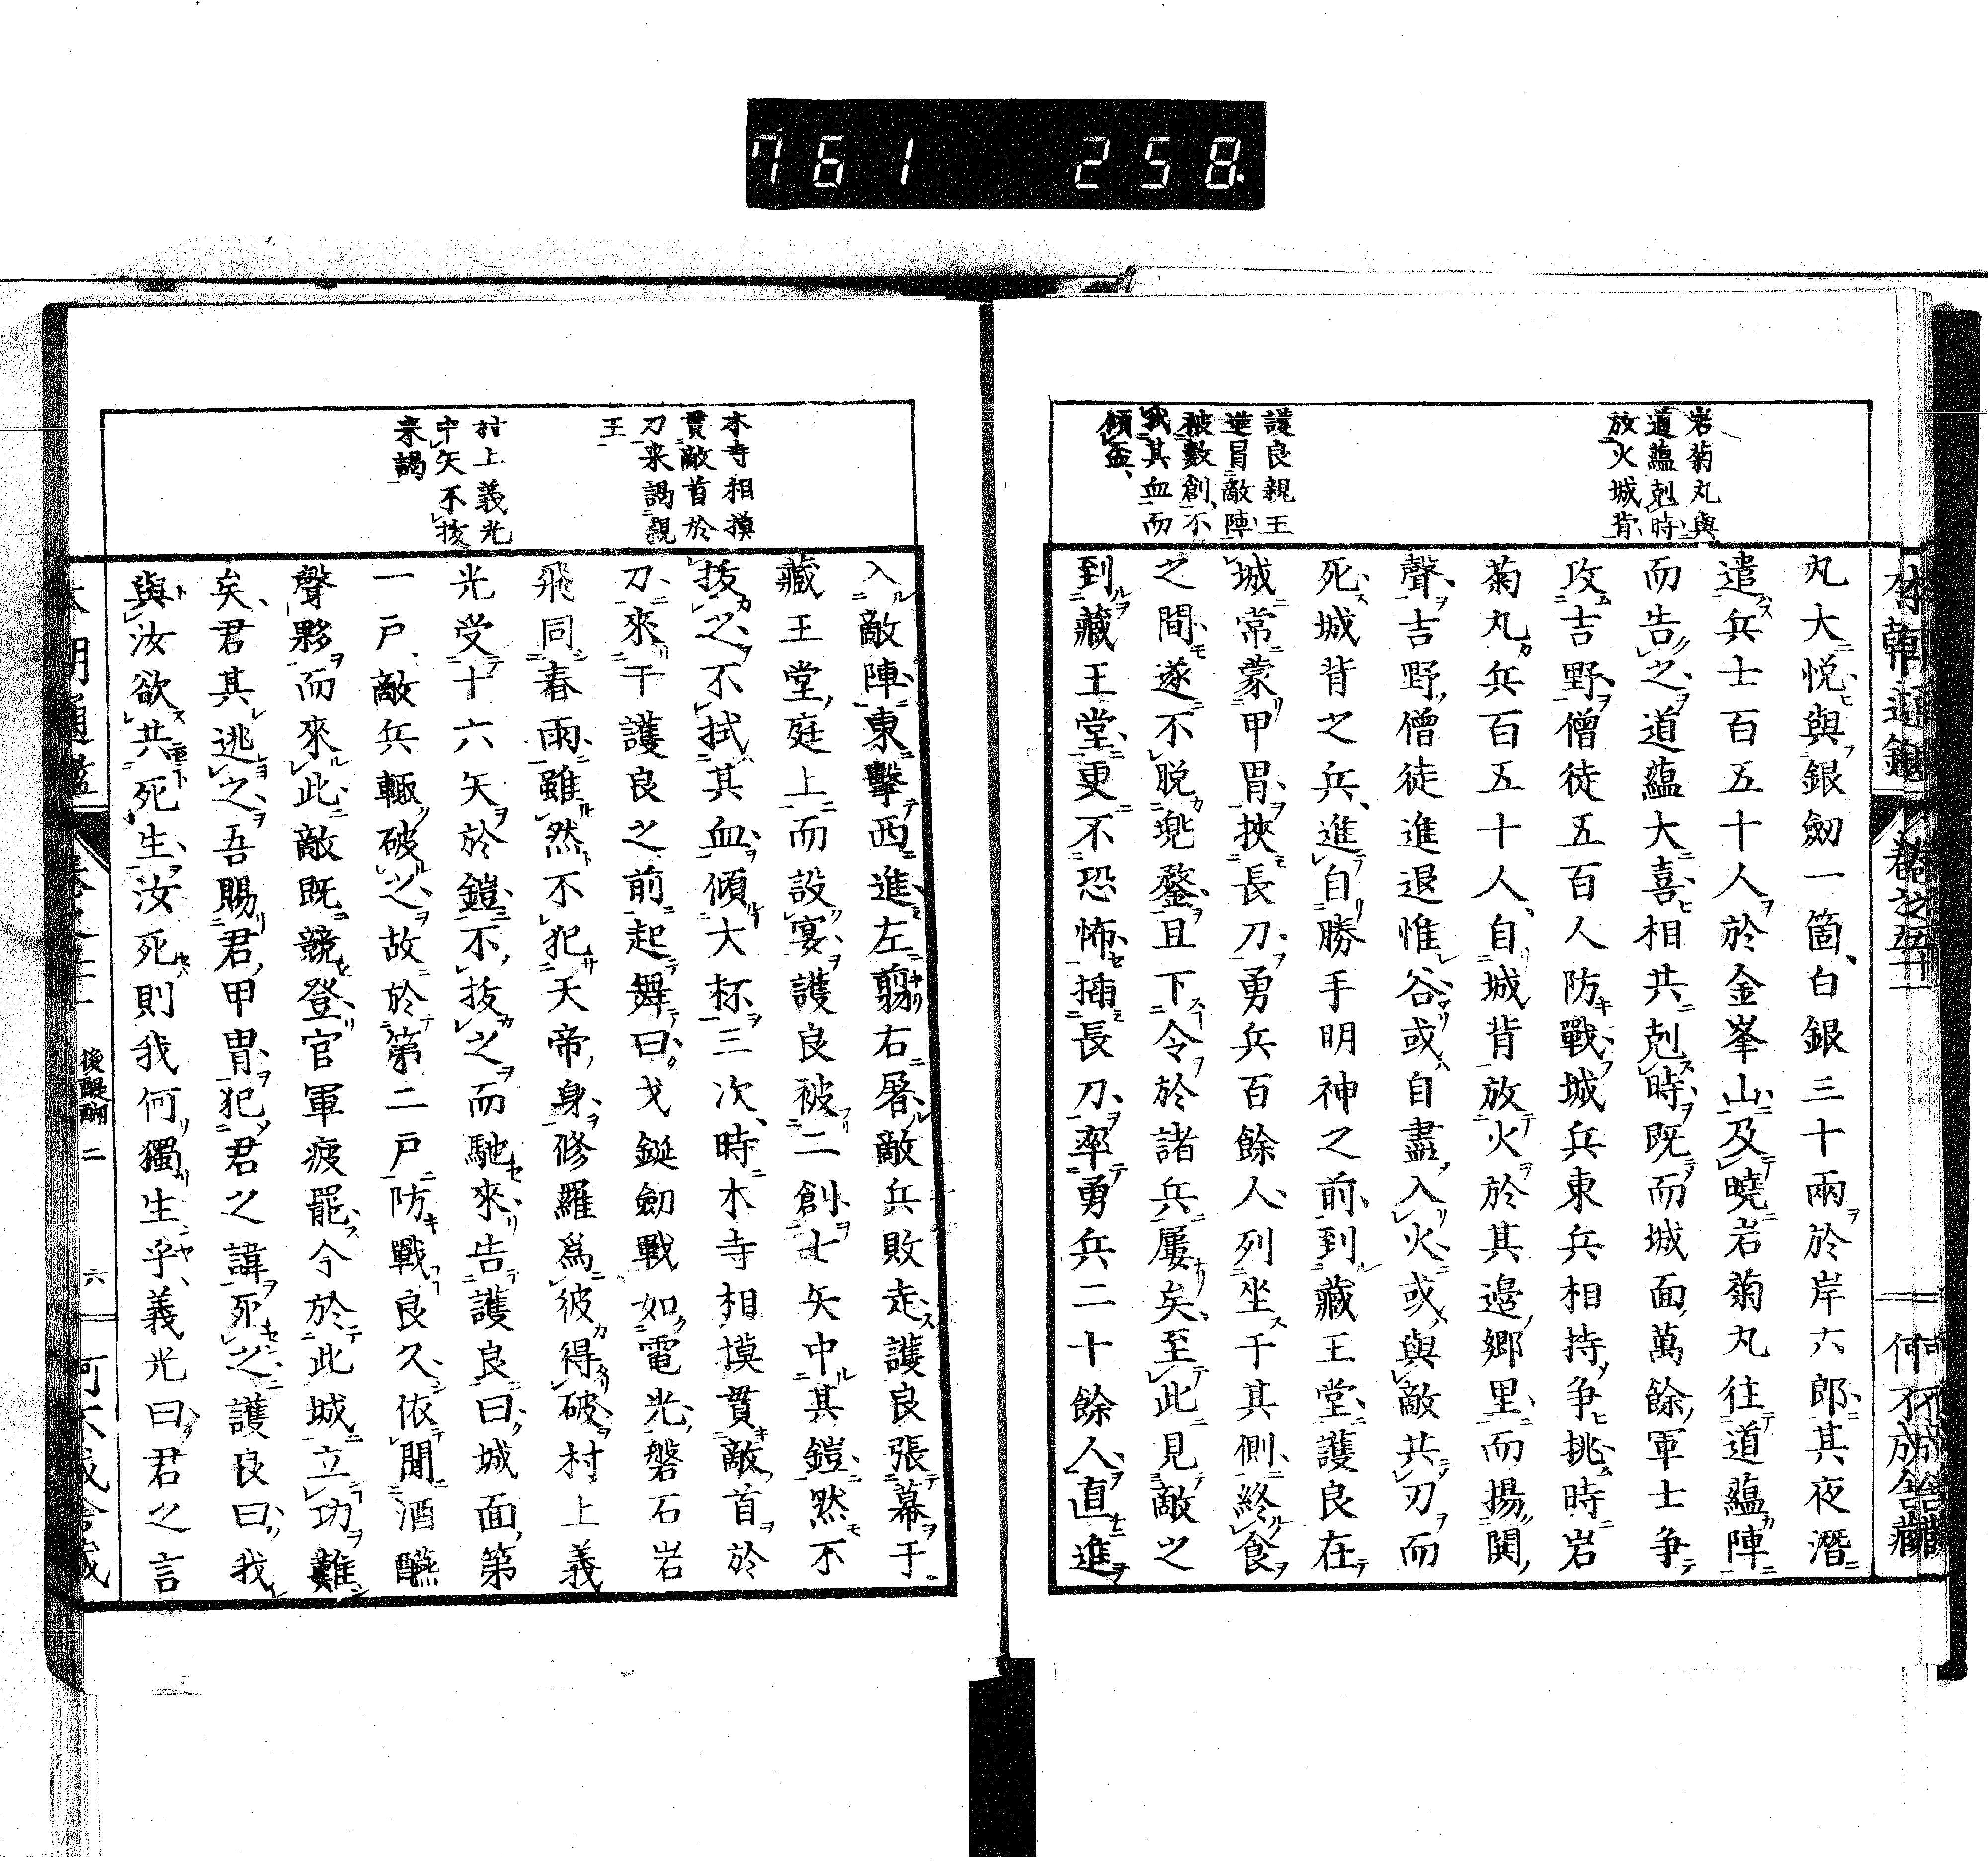 761 258
岩菊丸與
道蘊剋時
放火城背
護良親王
進冒敵陣
被數創不
拭其血而
傾盃
丸大悅與銀劒一箇白銀三十兩於岸六郎其夜潛
遣兵士百五十人於金峯山及曉岩菊丸往道蘊陣
而告之道蘊大喜相共剋時既而城面萬餘軍士爭
攻吉野僧徒五百人防戰城兵東兵相持爭挑時岩
菊丸兵百五十人自城背放火於其邊鄉里而揚鬨
聲吉野僧徒進退惟谷或自盡入火或與敵共刃而
死城背之兵進自勝手明神之前到藏王堂護良在
城常蒙甲冑挾長刀勇兵百餘人列坐于其側終食
之間遂不脫兜鍪且下令於諸兵屢矣至此見敵之
到藏王堂更不恐怖插長刀率勇兵二十餘人直進
木寺相摸
貫敵首於
刀来謁親
王
村上義光
中矢不拔
来謁
入敵陣東擊西進左翦右屠敵兵敗走護良張幕于
藏王堂庭上而設宴護良被二創七矢中其鎧然不
拔之不拭其血傾大杯三次時木寺相摸貫敵首於
刀來于護良之前起舞曰戈鋋劒戰如電光磐石岩
飛同春雨雖然不犯天帝身修羅爲彼得破村上義
光受十六矢於鎧不拔之而馳來告護良曰城面第
一戶敵兵輙破之故於第二戶防戰良久依聞酒醼
聲夥而來此敵既競登官軍疲罷今於此城立功難
矣君其逃之吾賜君甲冑犯君之諱死之護良曰我
與汝欲共死生汝死則我何獨生乎義光曰君之言
後醍醐 二
六